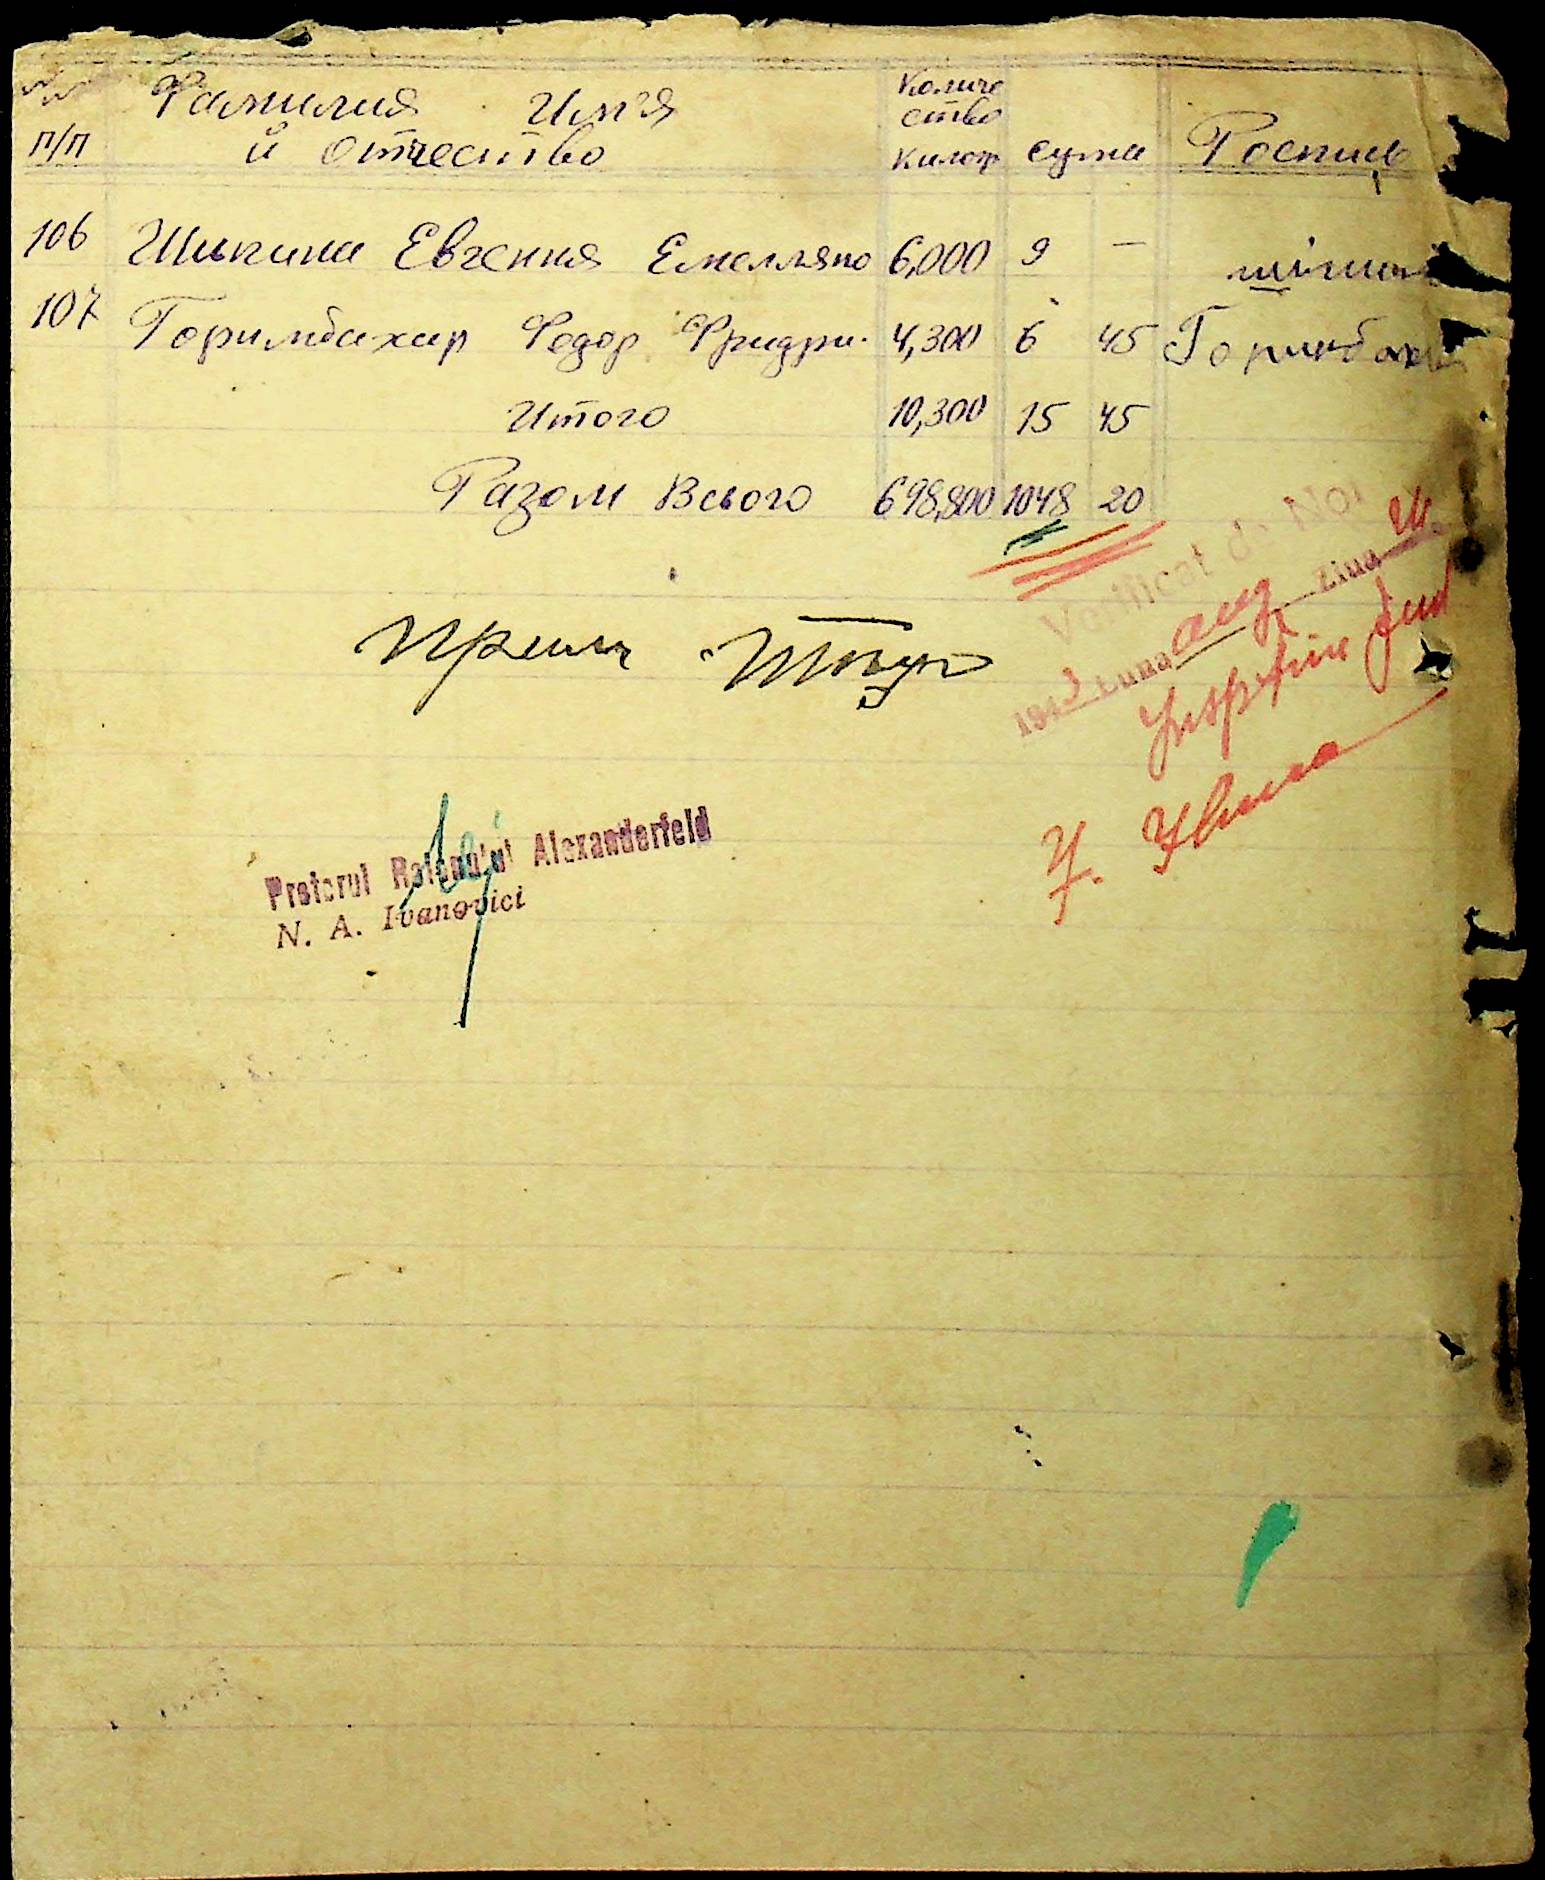 Фамилия Имя Количе
ство
п/п и Отчество килогр сума Роспись
106 Шыпина Евгения Емелляно 6,000 9 —
107 Горимбахир Федор Фридри. 4,300 6 45
Итого 10,300 15 45
Разом Всього 698,800 1048 20
Verificat de Noi
194 Luna aug Ziua
Pretorul Raionului Alexanderfeld
N. A. Ivanovici